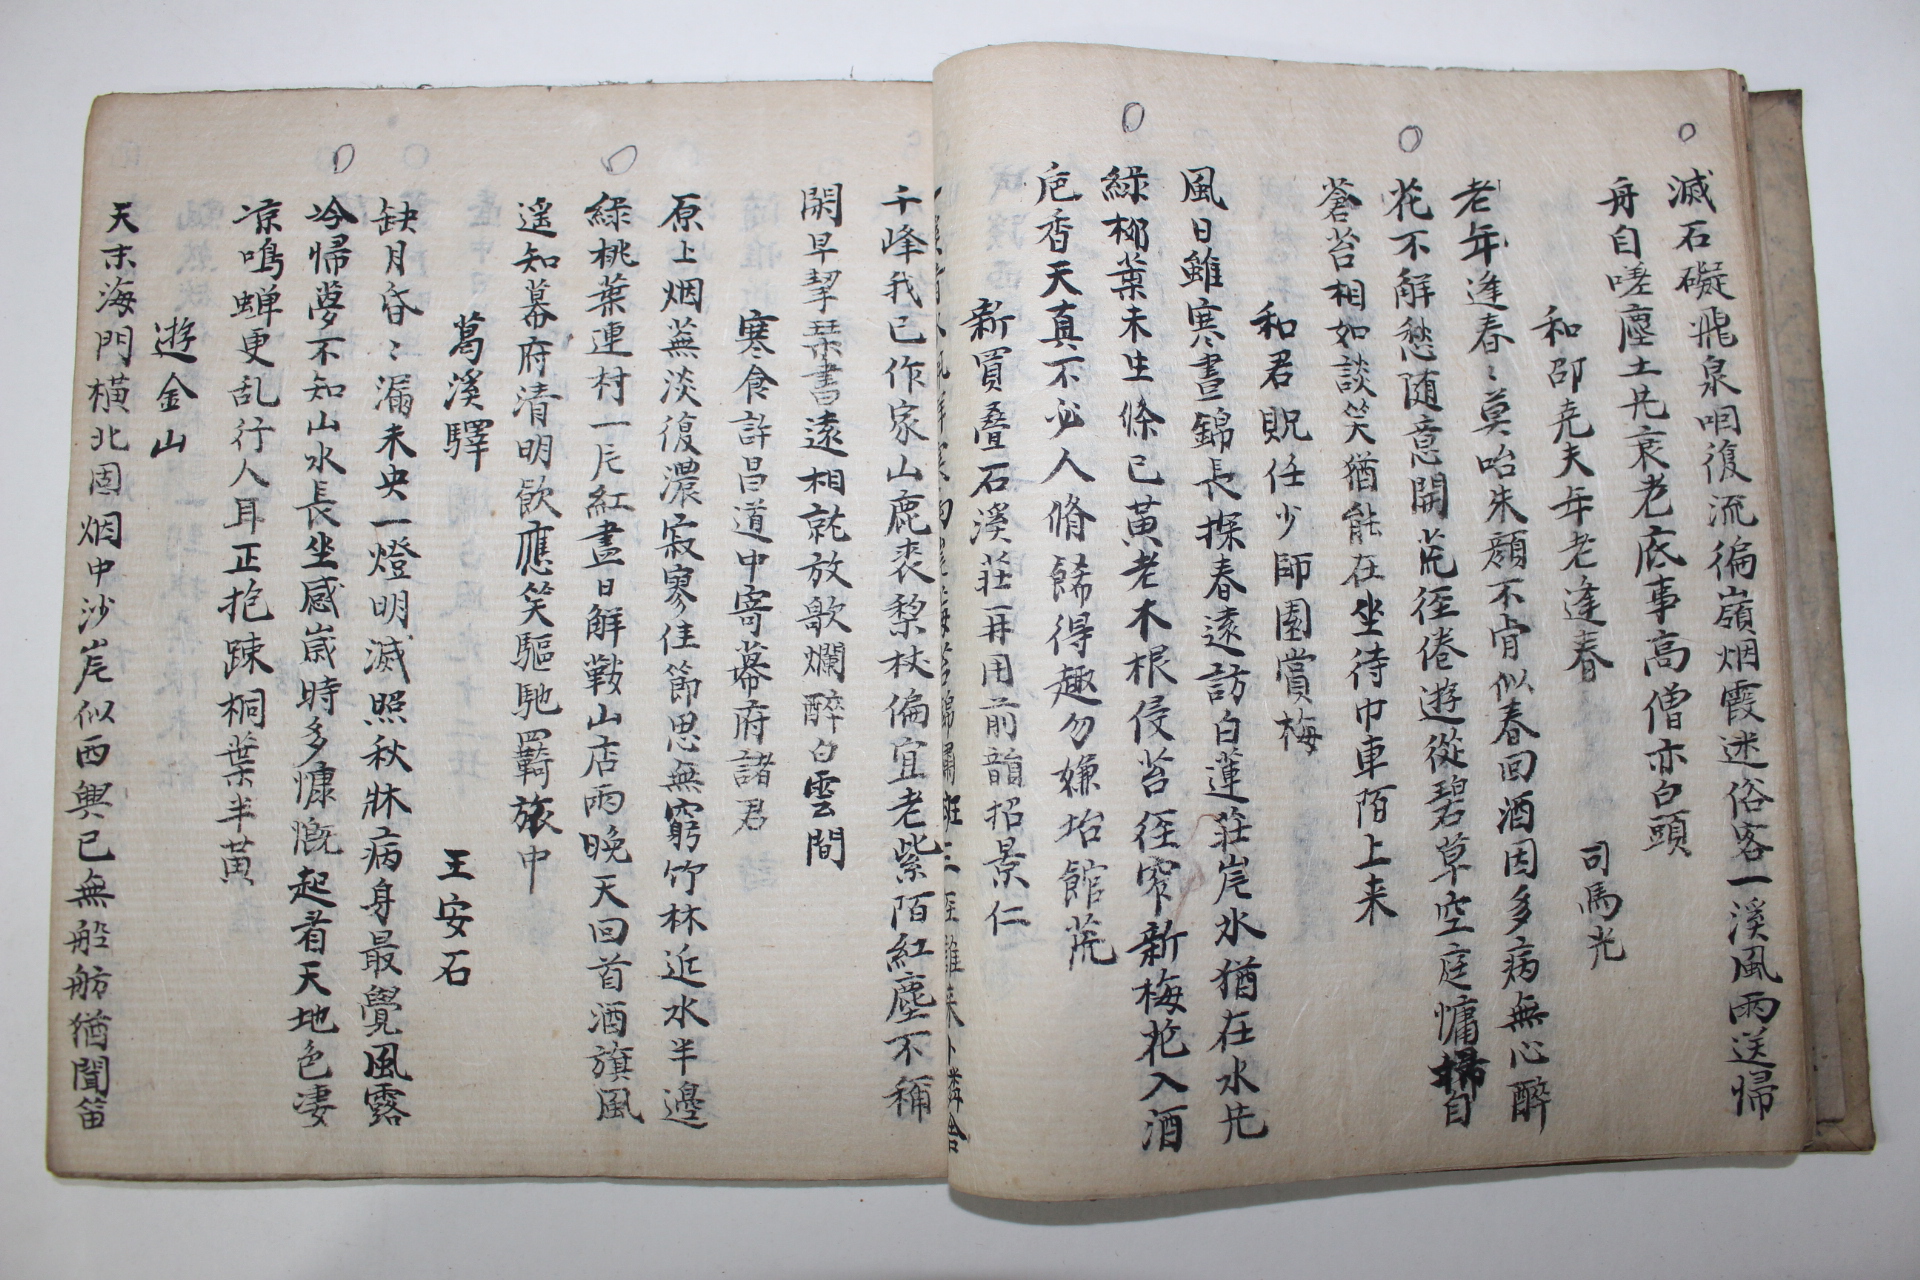 滅石礙飛泉咽復流徧嶺烟霞迷俗客一溪風雨送帰
舟自嗟塵土先衰老底事高僧亦白頭
和邵尭夫年老逢春
司馬光
老年逢春〻莫咍朱顔不肯似春回酒因多病無心醉
花不解愁随意開荒径倦遊從碧草空庭慵掃自
蒼苔相如談笑猶能在坐待巾車陌上来
和君貺任少師園賞梅
風日雖寒晝錦長探春遠訪白蓮莊岸氷猶在水先
綠柳葉未生條已黃老木根侵苔径窄新梅花入酒
巵香天真不必人脩餙得趣勿嫌坮館荒
新買疊石溪莊再用前韻招景仁
千峰我已作家山鹿裘黎杖偏宜老紫陌紅塵不稱
閑早挈琹書遠相就放歌爛醉白雲間
寒食許昌道中寄幕府諸君
原上烟蕪淡復濃寂寥佳節思無窮竹林近水半邊
綠桃葉連村一片紅盡日解鞍山店雨晚天回首酒旗風
遥知幕府清明飲應笑驅馳羈旅中
葛溪驛
王安石
缺月昏〻漏未央一燈明滅照秋牀病身最覺風露
冷帰夢不知山水長坐感歲時多慷慨起看天地色凄
凉鳴蝉更乱行人耳正抱踈桐葉半黃
遊金山
天末海門橫北固烟中沙岸似西興已無船舫猶聞笛